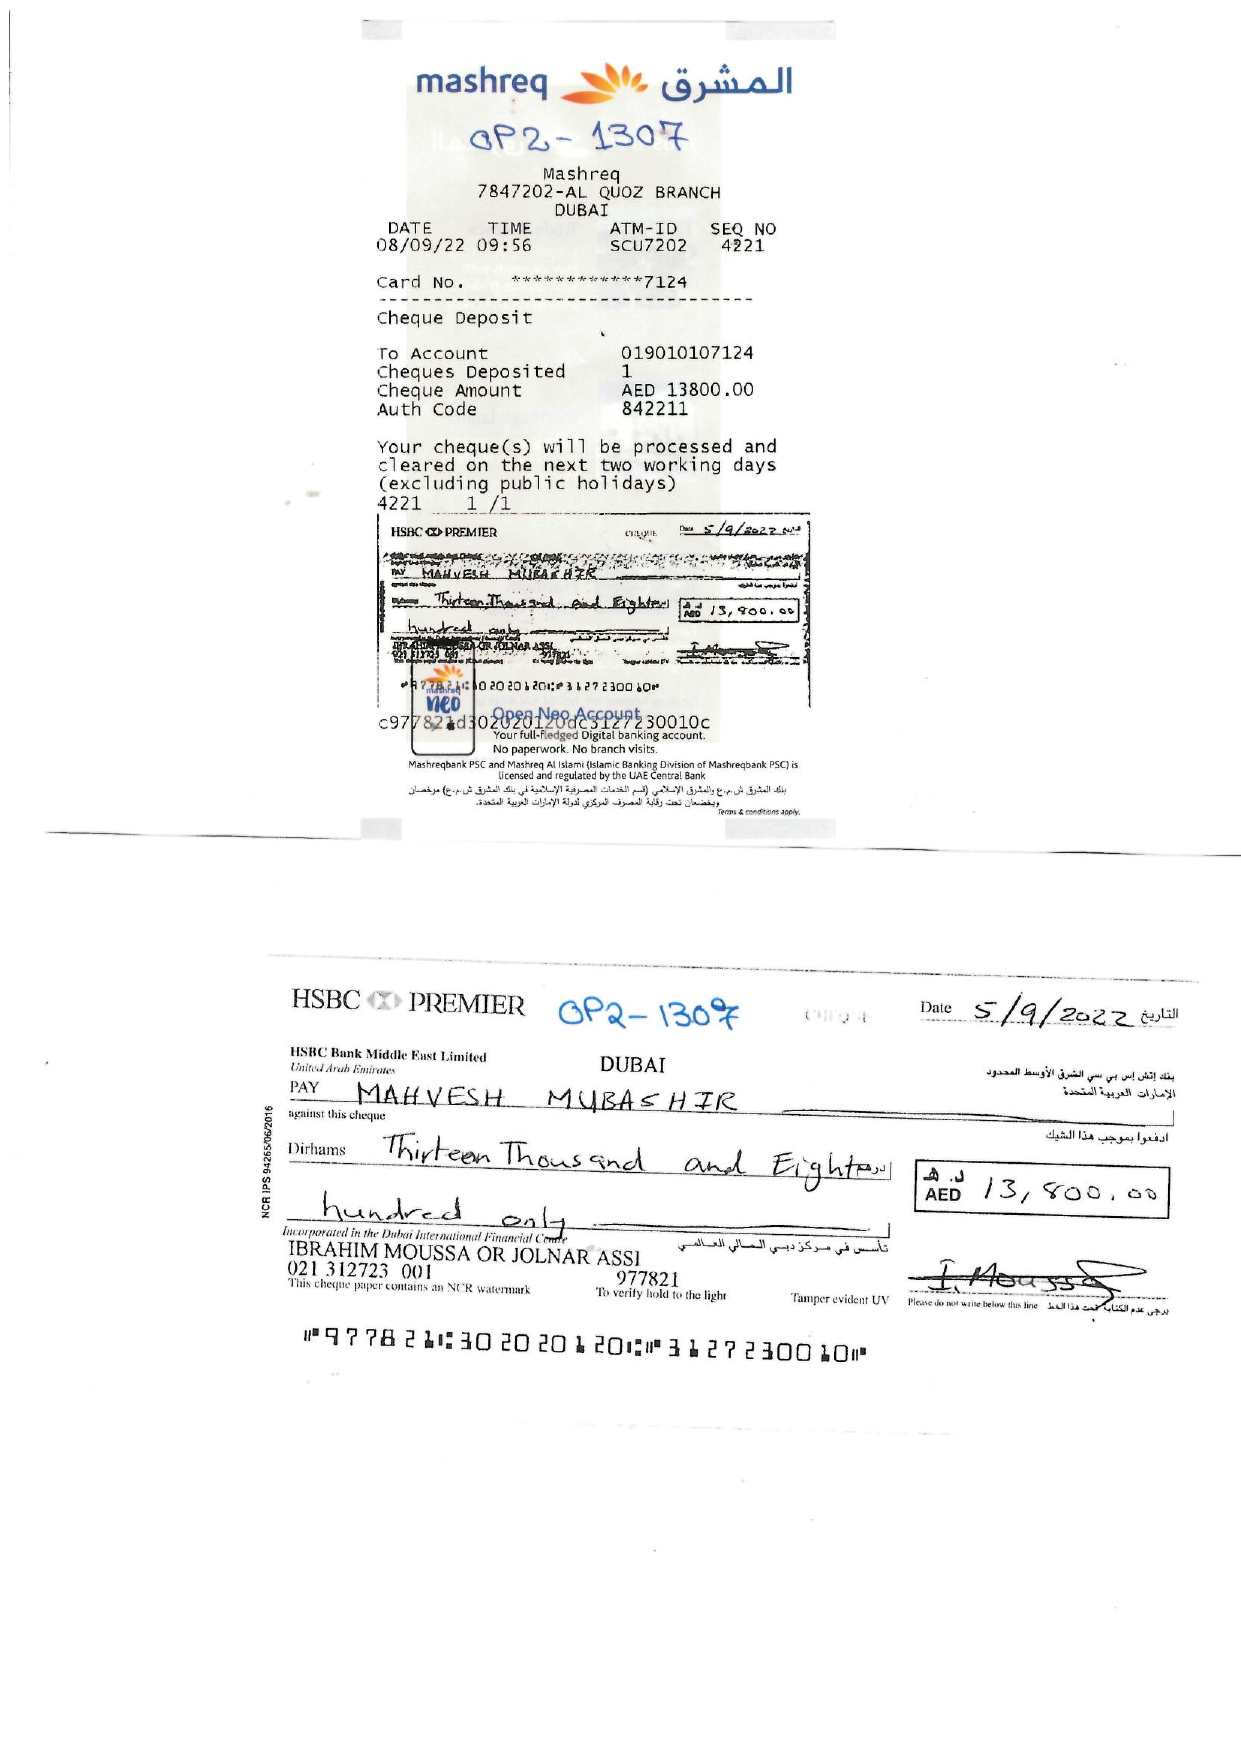 mashreq المشرق
OP2-1307
Mashreq
7847202-AL QUOZ BRANCH
DUBAI
DATE TIME ATM-ID SEQ NO
08/09/22 09:56 SCU7202 4221
Card No. ************7124
--------------------------------
Cheque Deposit
To Account 019010107124
Cheques Deposited 1
Cheque Amount AED 13800.00
Auth Code 842211
Your cheque(s) will be processed and
cleared on the next two working days
(excluding public holidays)
4221 1 /1
HSBC PREMIER CHEQUE Date 5/9/2022
PAY MAHVESH MUBASHIR
Thirteen Thousand and Eighteen
AED 13,800.00
hundred only
OR JOLNAR ASSI
I.Moussa
⑈977821⑆302020120⑆⑈312723001 0⑈
mashreq
neo
Open Neo Account
c977821d302020120dc3127230010c
Your full-fledged Digital banking account.
No paperwork. No branch visits.
Mashreqbank PSC and Mashreq Al Islami (Islamic Banking Division of Mashreqbank PSC) is
licensed and regulated by the UAE Central Bank
بنك المشرق ش.م.ع والمشرق الإسلامي (قسم الخدمات المصرفية الإسلامية في بنك المشرق ش.م.ع) مرخصان
ويخضعان تحت رقابة المصرف المركزي لدولة الإمارات العربية المتحدة.
Terms & conditions apply.
HSBC PREMIER OP2-1307 Date 5/9/2022 التاريخ
HSBC Bank Middle East Limited DUBAI بنك إتش إس بي سي الشرق الأوسط المحدود
United Arab Emirates الإمارات العربية المتحدة
PAY MAHVESH MUBASHIR
against this cheque ادفعوا بموجب هذا الشيك
Dirhams Thirteen Thousand and Eighteen درهم
د.هـ AED 13,800.00
hundred only
Incorporated in the Dubai International Financial Centre تأسس في مركز دبي المالي العالمي
IBRAHIM MOUSSA OR JOLNAR ASSI
021 312723 001 977821
I.Moussa
This cheque paper contains an NCR watermark To verify hold to the light Tamper evident UV Please do not write below this line يرجى عدم الكتابة تحت هذا الخط
⑈977821⑆302020120⑆⑈3127230010⑈
NCR IPS 94265/06/2016